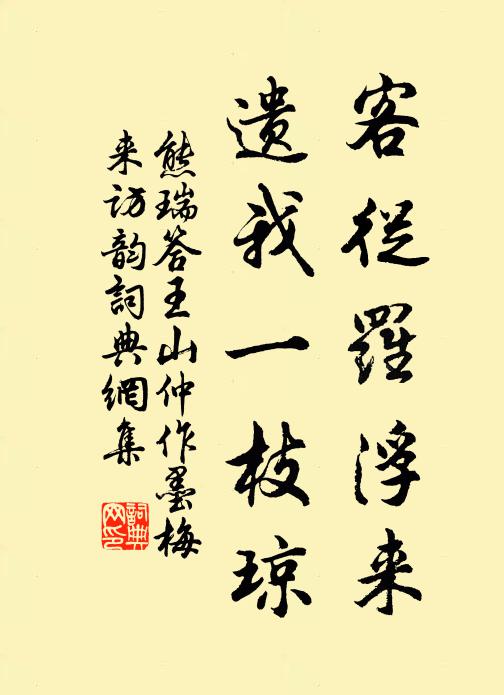 客從羅浮来
遺我一枝琼
熊瑞答王山仲作墨梅
来访韵詞典網集
詞典
网印